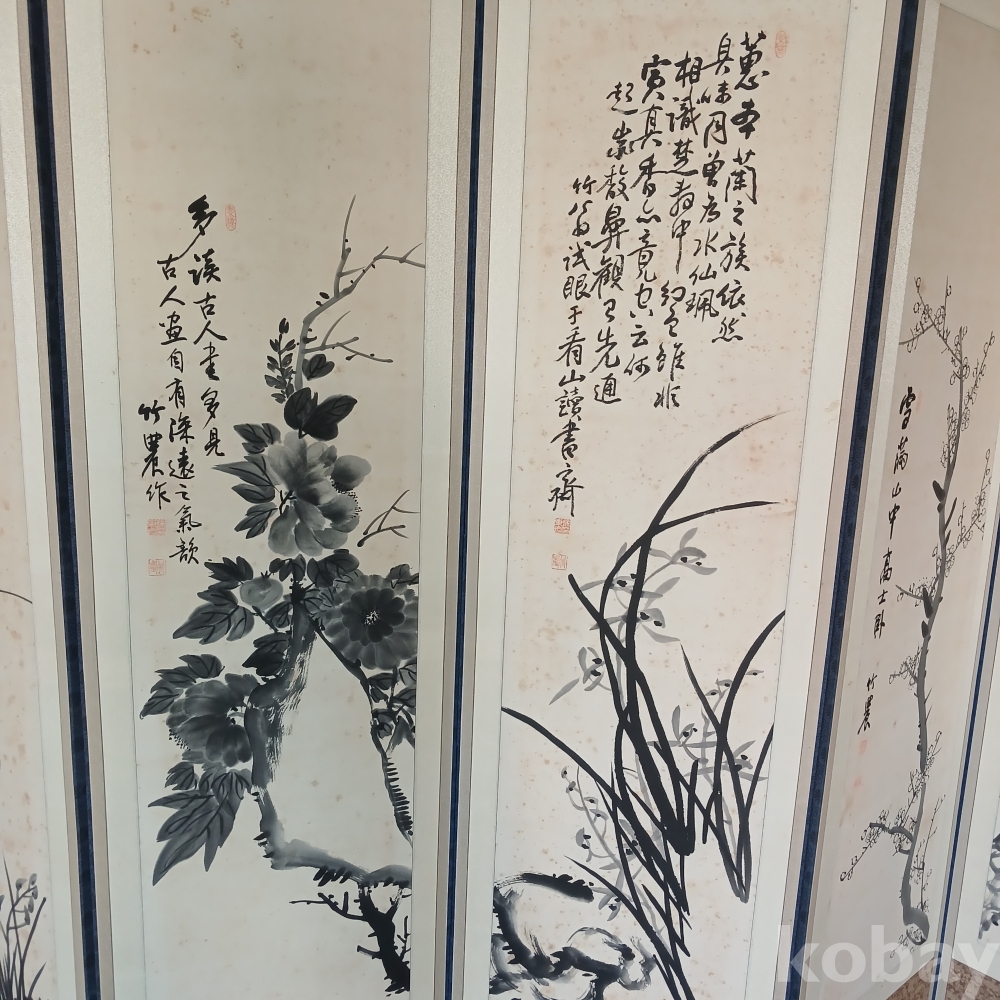 多読古人書多見
古人畫自有深遠之氣韻
竹農作
蕙本蘭之族依然
臭味同曾為水仙珮
相識楚辭中幻色雖非
實真香亦竟空云何
起微馥鼻觀已先通
竹翁試眼于看山讀書齋
雪滿山中高士臥
竹農
kobay